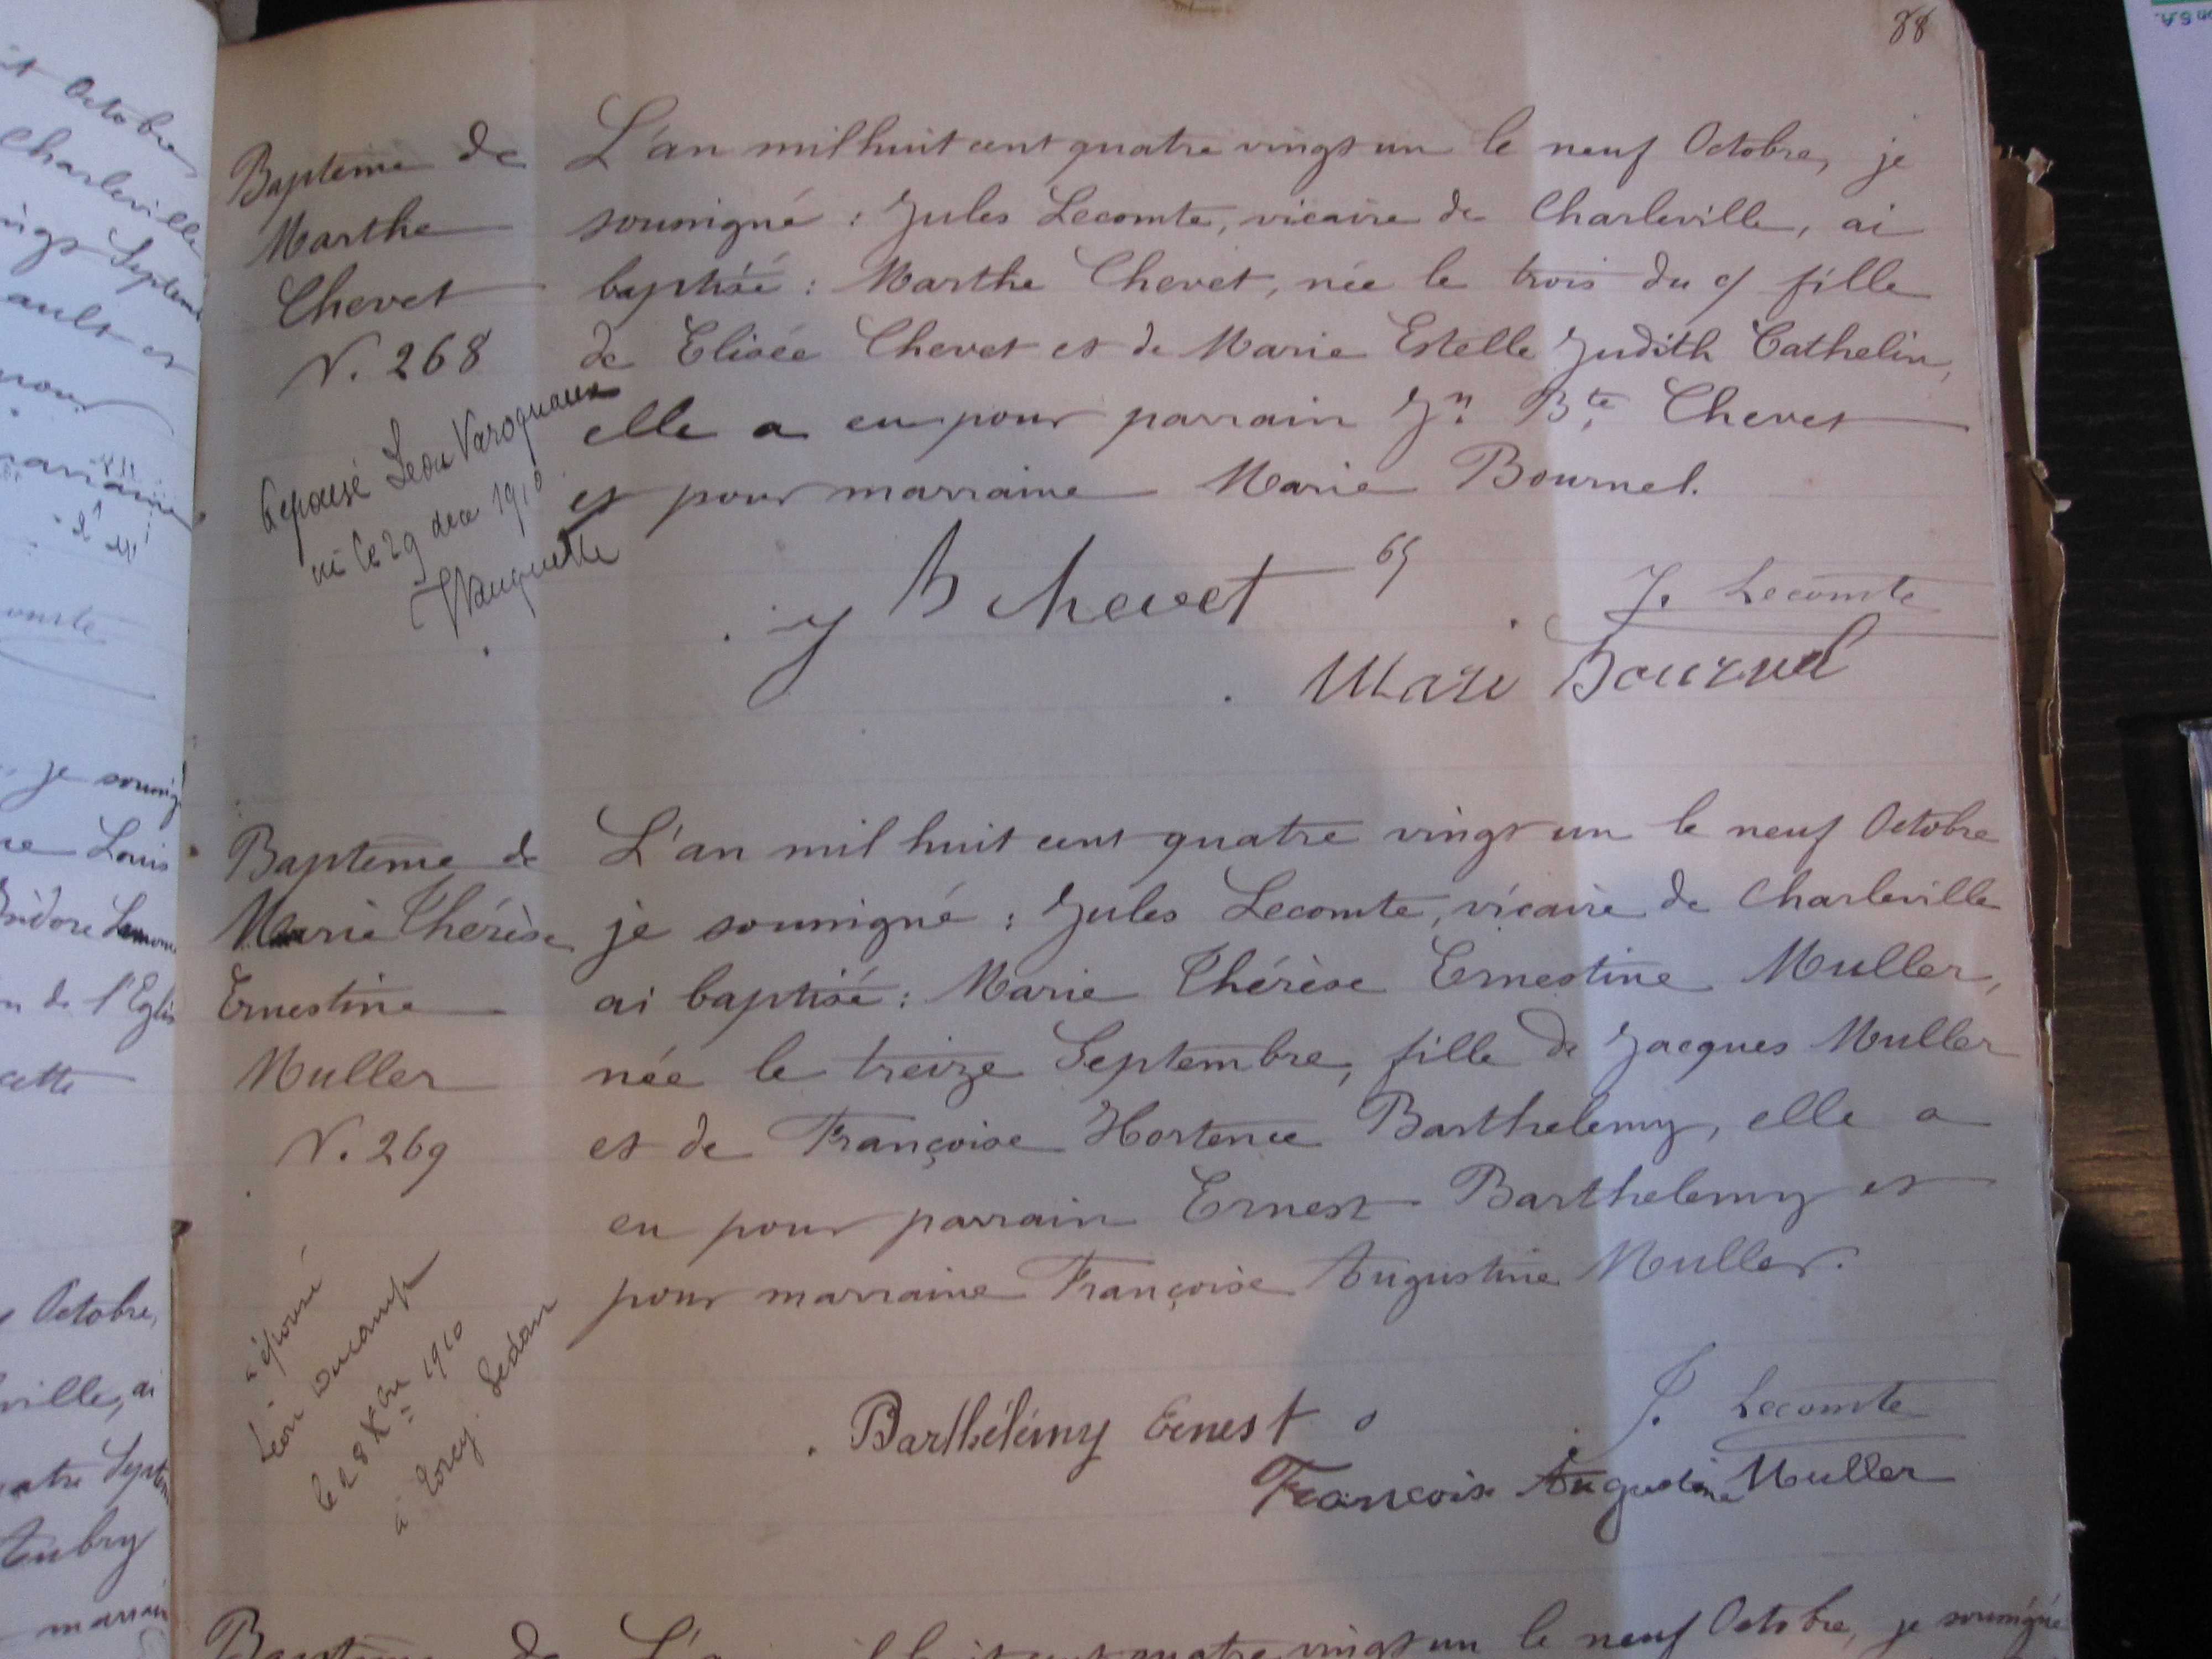 88
Baptême de
Marthe
Chevet
N. 268
L'an mil huit cent quatre vingt un le neuf Octobre, je
soussigné : Jules Lecomte, vicaire de Charleville, ai
baptisé : Marthe Chevet, née le trois du ct fille
de Elisée Chevet et de Marie Estelle Judith Cathelin,
elle a eu pour parrain Jn. Bte. Chevet
et pour marraine Marie Bournel.
a épousé Léon Varoquaux
ici le 29 dec 1910
J B Chevet
J. Lecomte
Marie Bournel
Baptême de
Marie Thérèse
Ernestine
Muller
N. 269
L'an mil huit cent quatre vingt un le neuf Octobre
je soussigné : Jules Lecomte, vicaire de Charleville
ai baptisé : Marie Thérèse Ernestine Muller,
née le treize Septembre, fille de Jacques Muller
et de Françoise Hortence Barthelemy, elle a
eu pour parrain Ernest Barthelemy et
pour marraine Françoise Augustine Muller.
a épousé
Léon Ducamp
le 28 Xbre 1910
à Torcy. Sedan
Barthélémy Ernest
J. Lecomte
Francoise Augustine Muller
Baptême de
L'an mil huit cent quatre vingt un le neuf Octobre, je soussigné
Octobre
Charleville
je soussig
Louis
de l'Eglis
Octobre,
ville, ai
Aubry